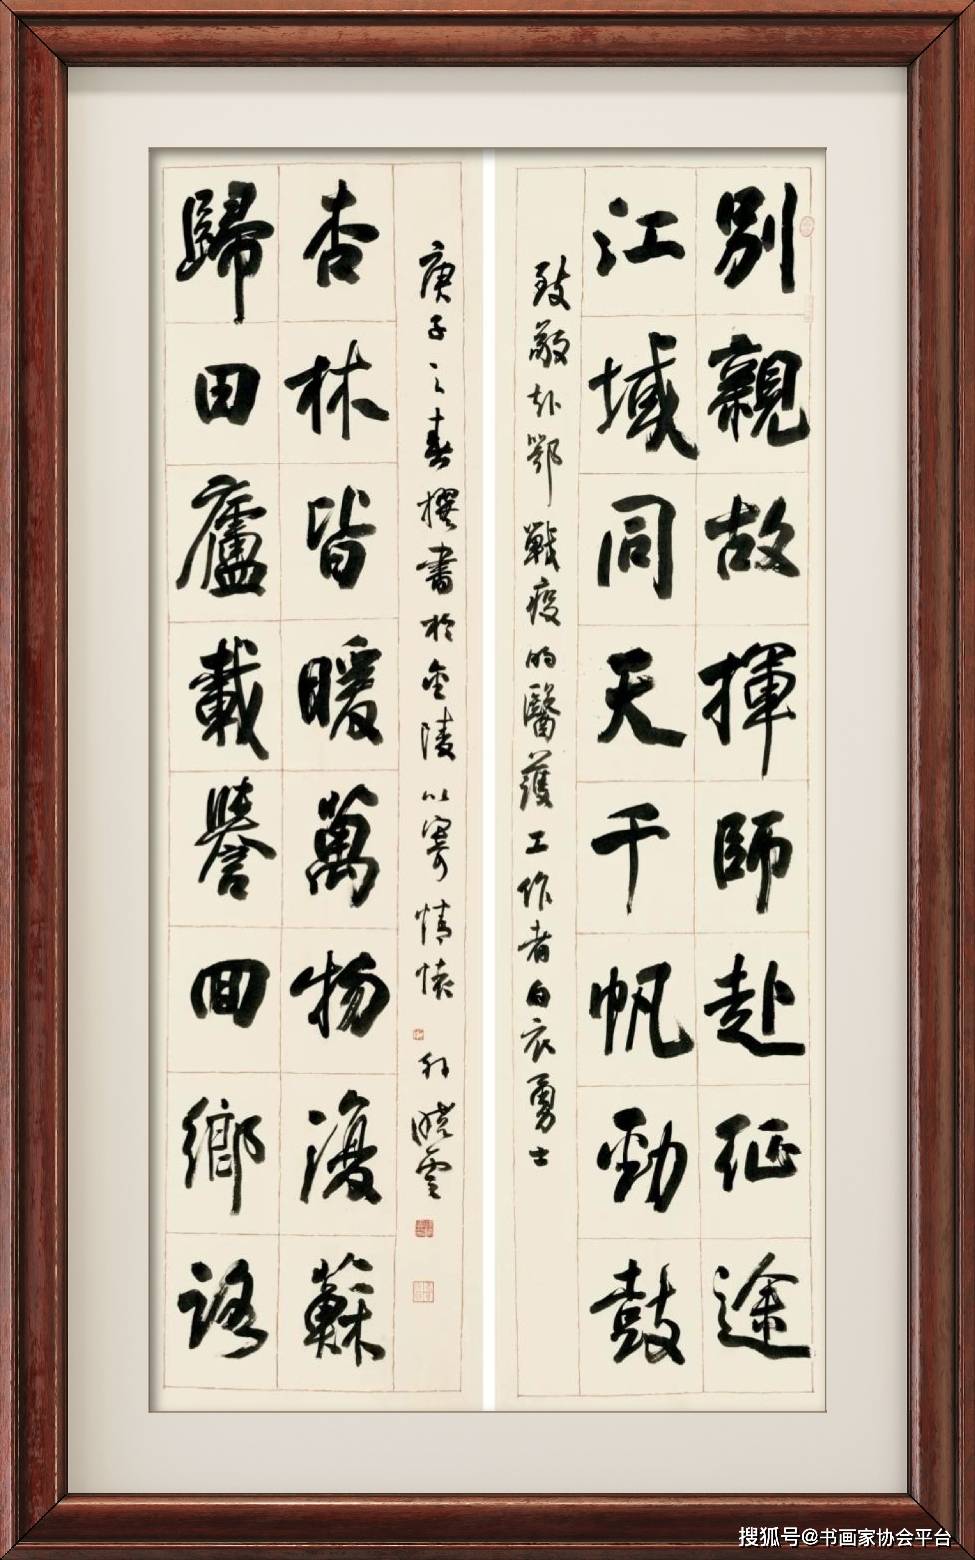 別親故揮師赴征途
江域同天千帆勁鼓
致敬赴鄂戰疫的醫護工作者白衣勇士
歸田廬載譽回鄉路
杏林皆暖萬物復蘇
庚子之春撰書於金陵以寄情懷 孫曉雲
搜狐号@书画家协会平台